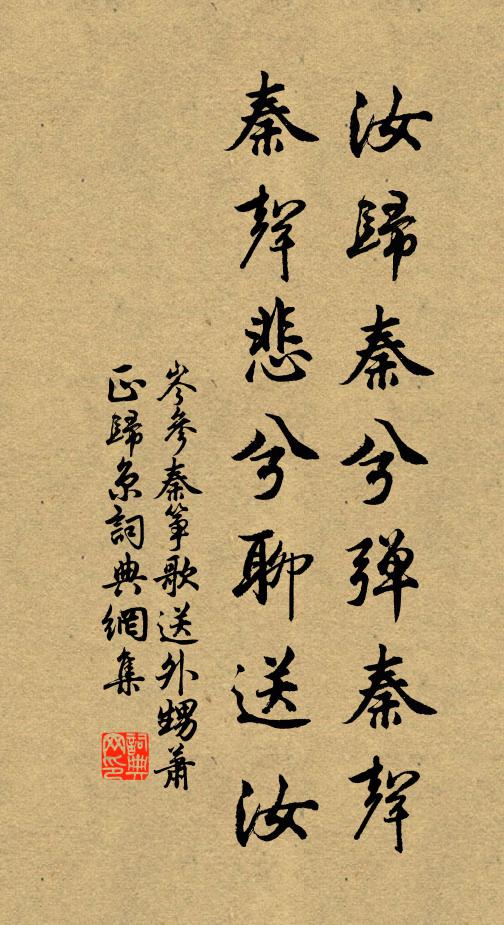 汝歸秦兮彈秦聲
秦聲悲兮聊送汝
岑參秦箏歌送外甥蕭
正歸京詞典網集
詞典
网印